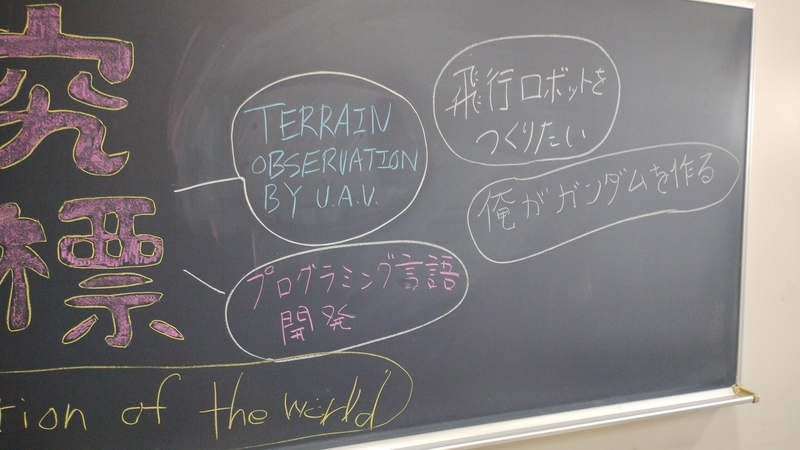 究
標
TERRAIN
OBSERVATION
BY U.A.V.
プログラミング言語
開発
飛行ロボットを
つくりたい
俺がガンダムを作る
of the world